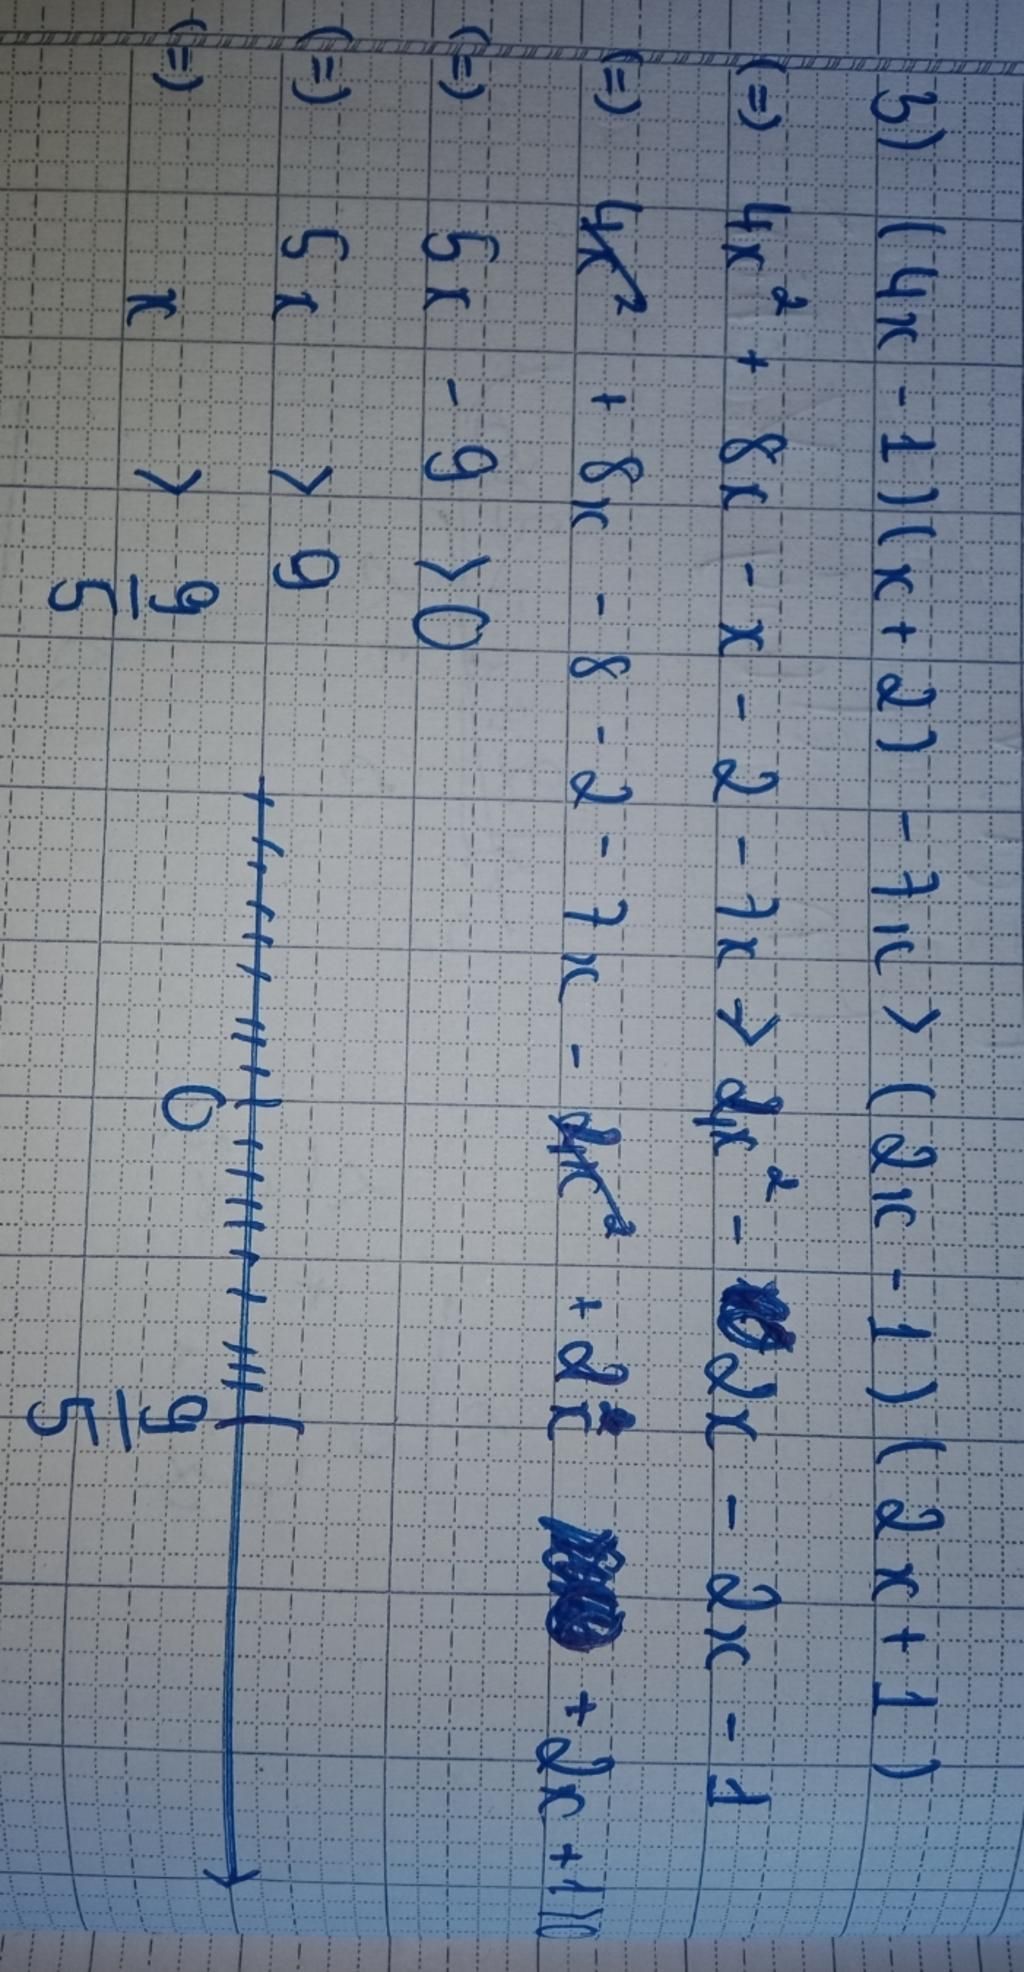 3) (4x - 1)(x + 2) - 7x > (2x - 1)(2x + 1)
(=) 4x² + 8x - x - 2 - 7x > 4x² - 2x - 2x - 1
(=) 4x² + 8x - 8 - 2 - 7x - 4x² + 2x + 2x + 1 > 0
(=) 5x - 9 > 0
(=) 5x > 9
(=) x > 9/5
0 9/5